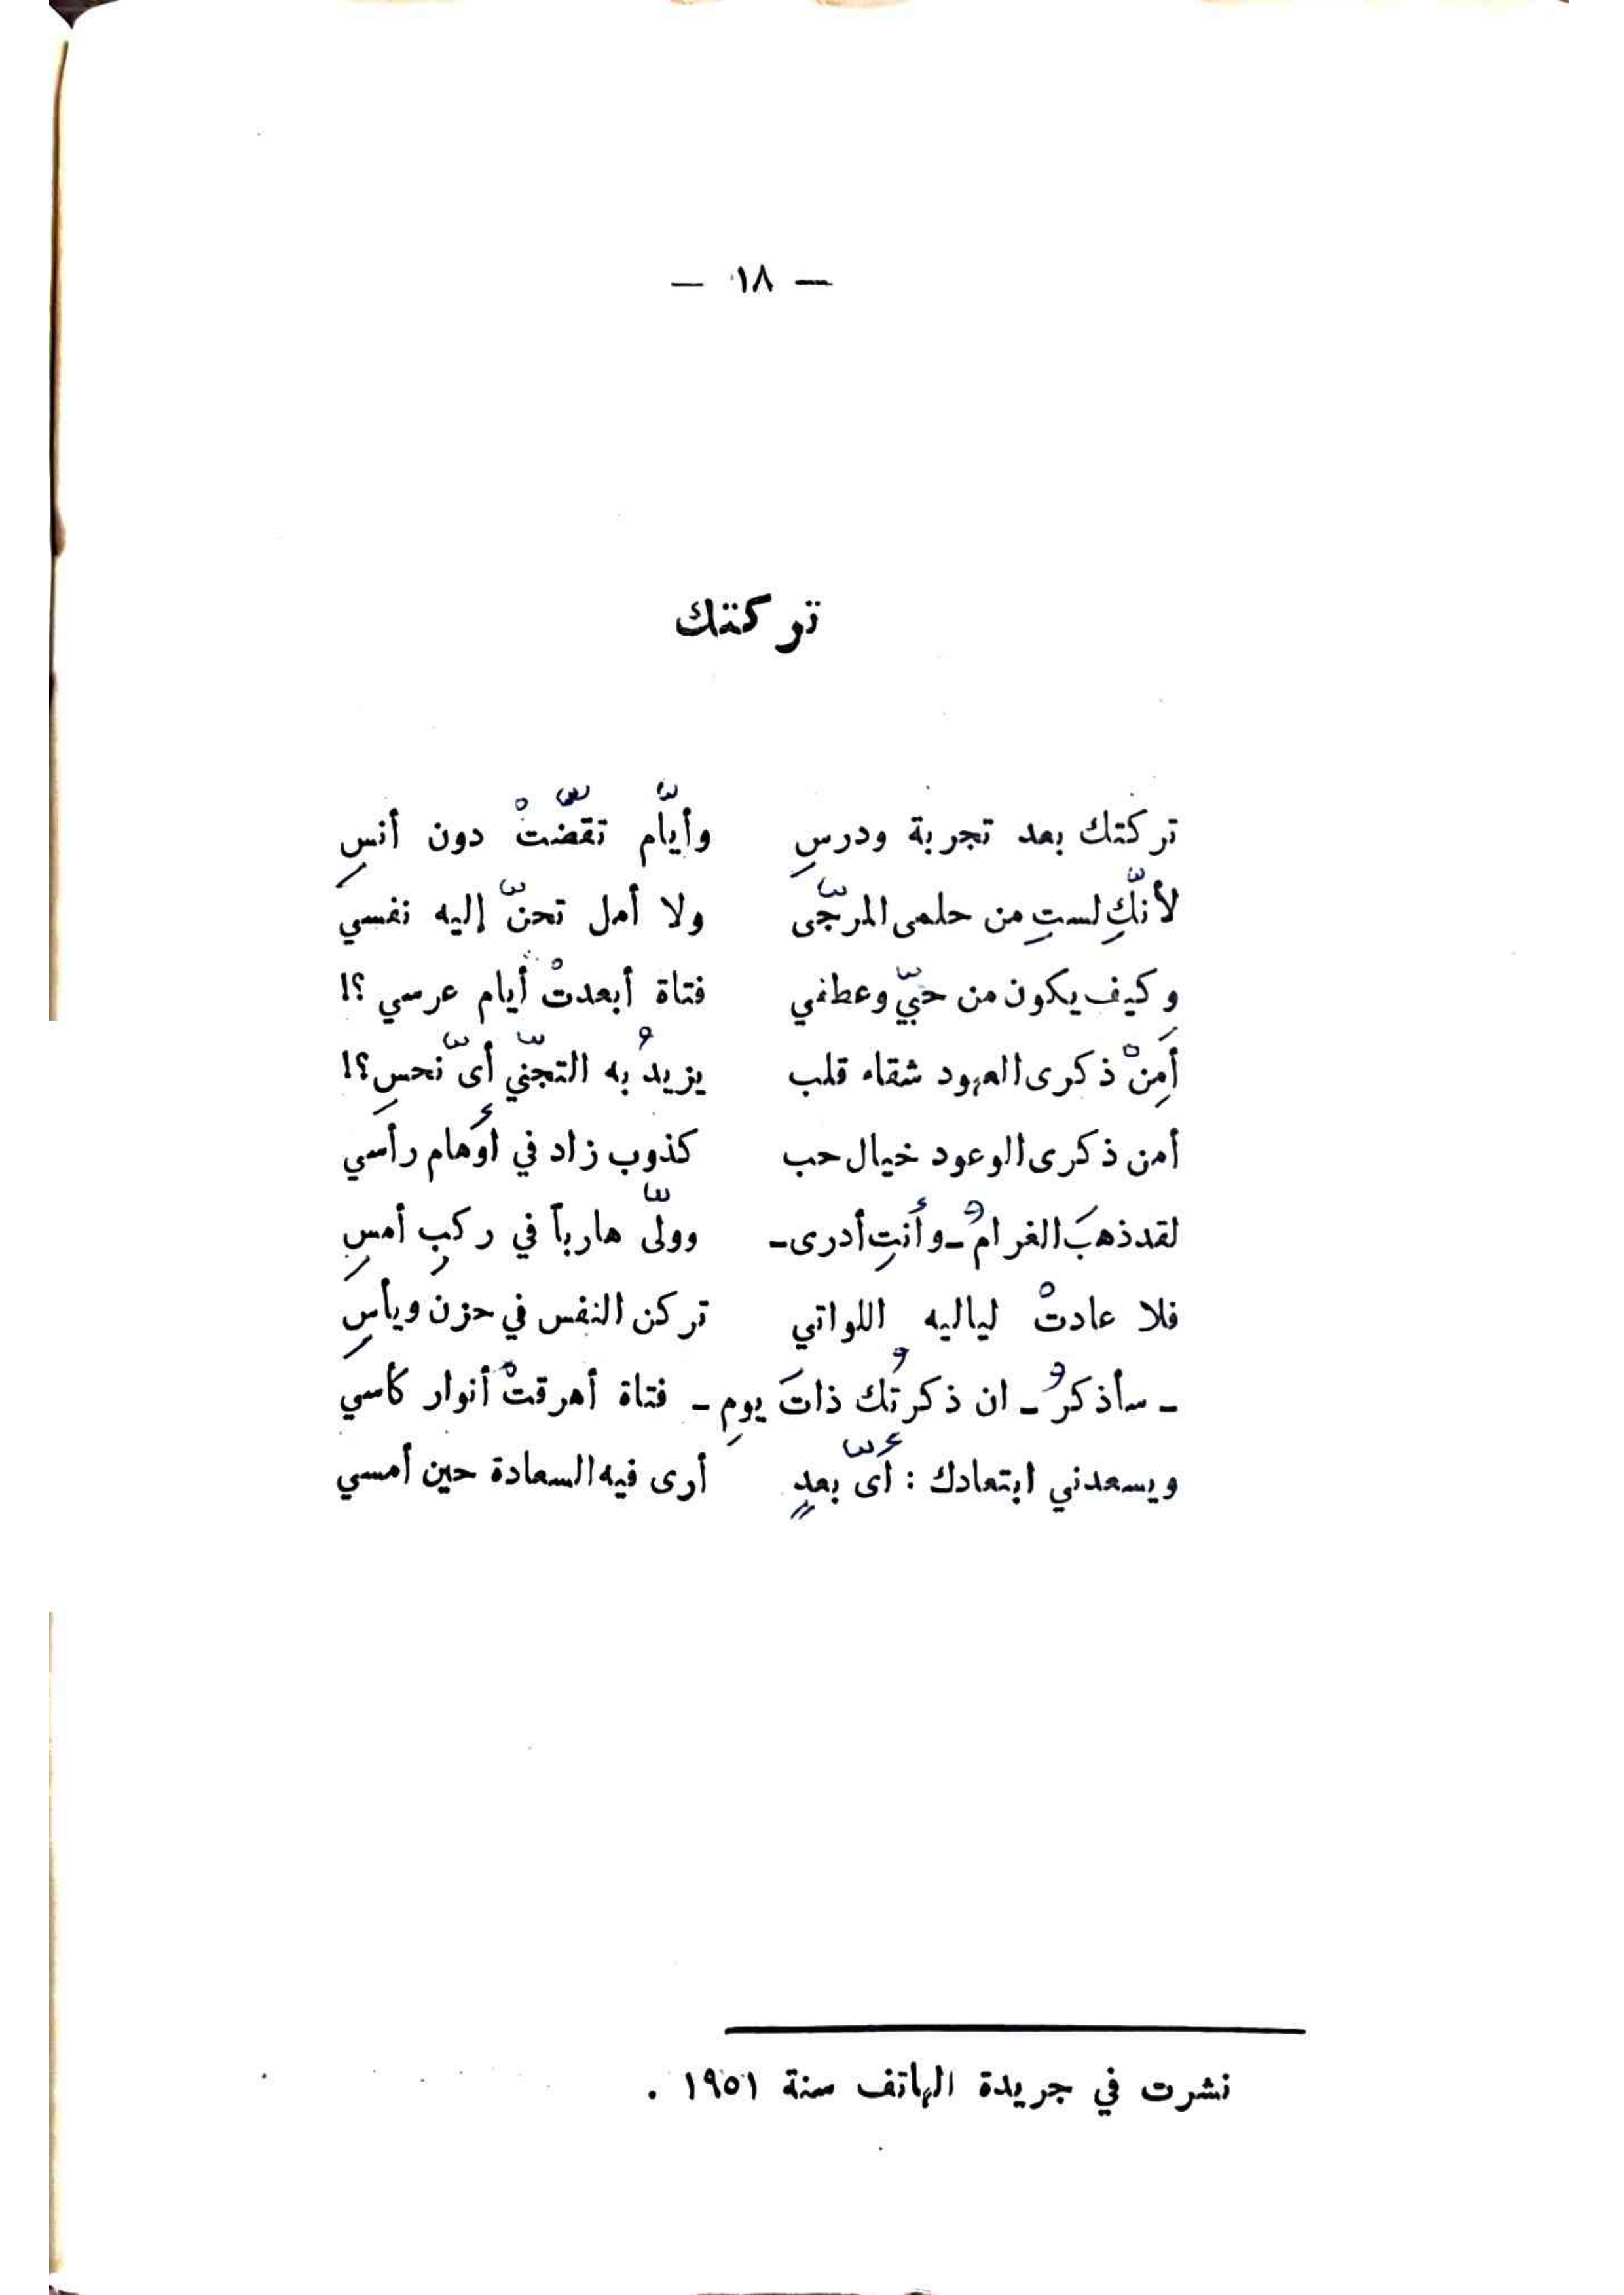 — ١٨ —
تركتك
تركتك بعد تجربة ودرسِ وأيّام تقضّتْ دون أنسِ
لأنّكِ لستِ من حلمى المرجّى ولا أمل تحنّ إليه نفسي
وكيف يكون من حبّي وعطفي فتاة أبعدتْ أيام عرسي ؟!
أَمِنْ ذكرى العهود شقاء قلب يزيدُ به التجنّي أىّ نحسِ؟!
أمن ذكرى الوعود خيال حب كذوب زاد في أوهام رأسي
لقد ذهبَ الغرامُ ـ وأنتِ أدرى ـ وولّى هارباً في ركبِ أمسِ
فلا عادتْ لياليه اللواتي تركن النفس في حزن ويأسِ
ـ سأذكرُ ـ ان ذكرتُك ذاتَ يومِ ـ فتاة أهرقتْ أنوار كأسي
ويسعدني ابتعادك : أىّ بعدٍ أرى فيه السعادة حين أمسي
نشرت في جريدة الهاتف سنة ١٩٥١ .